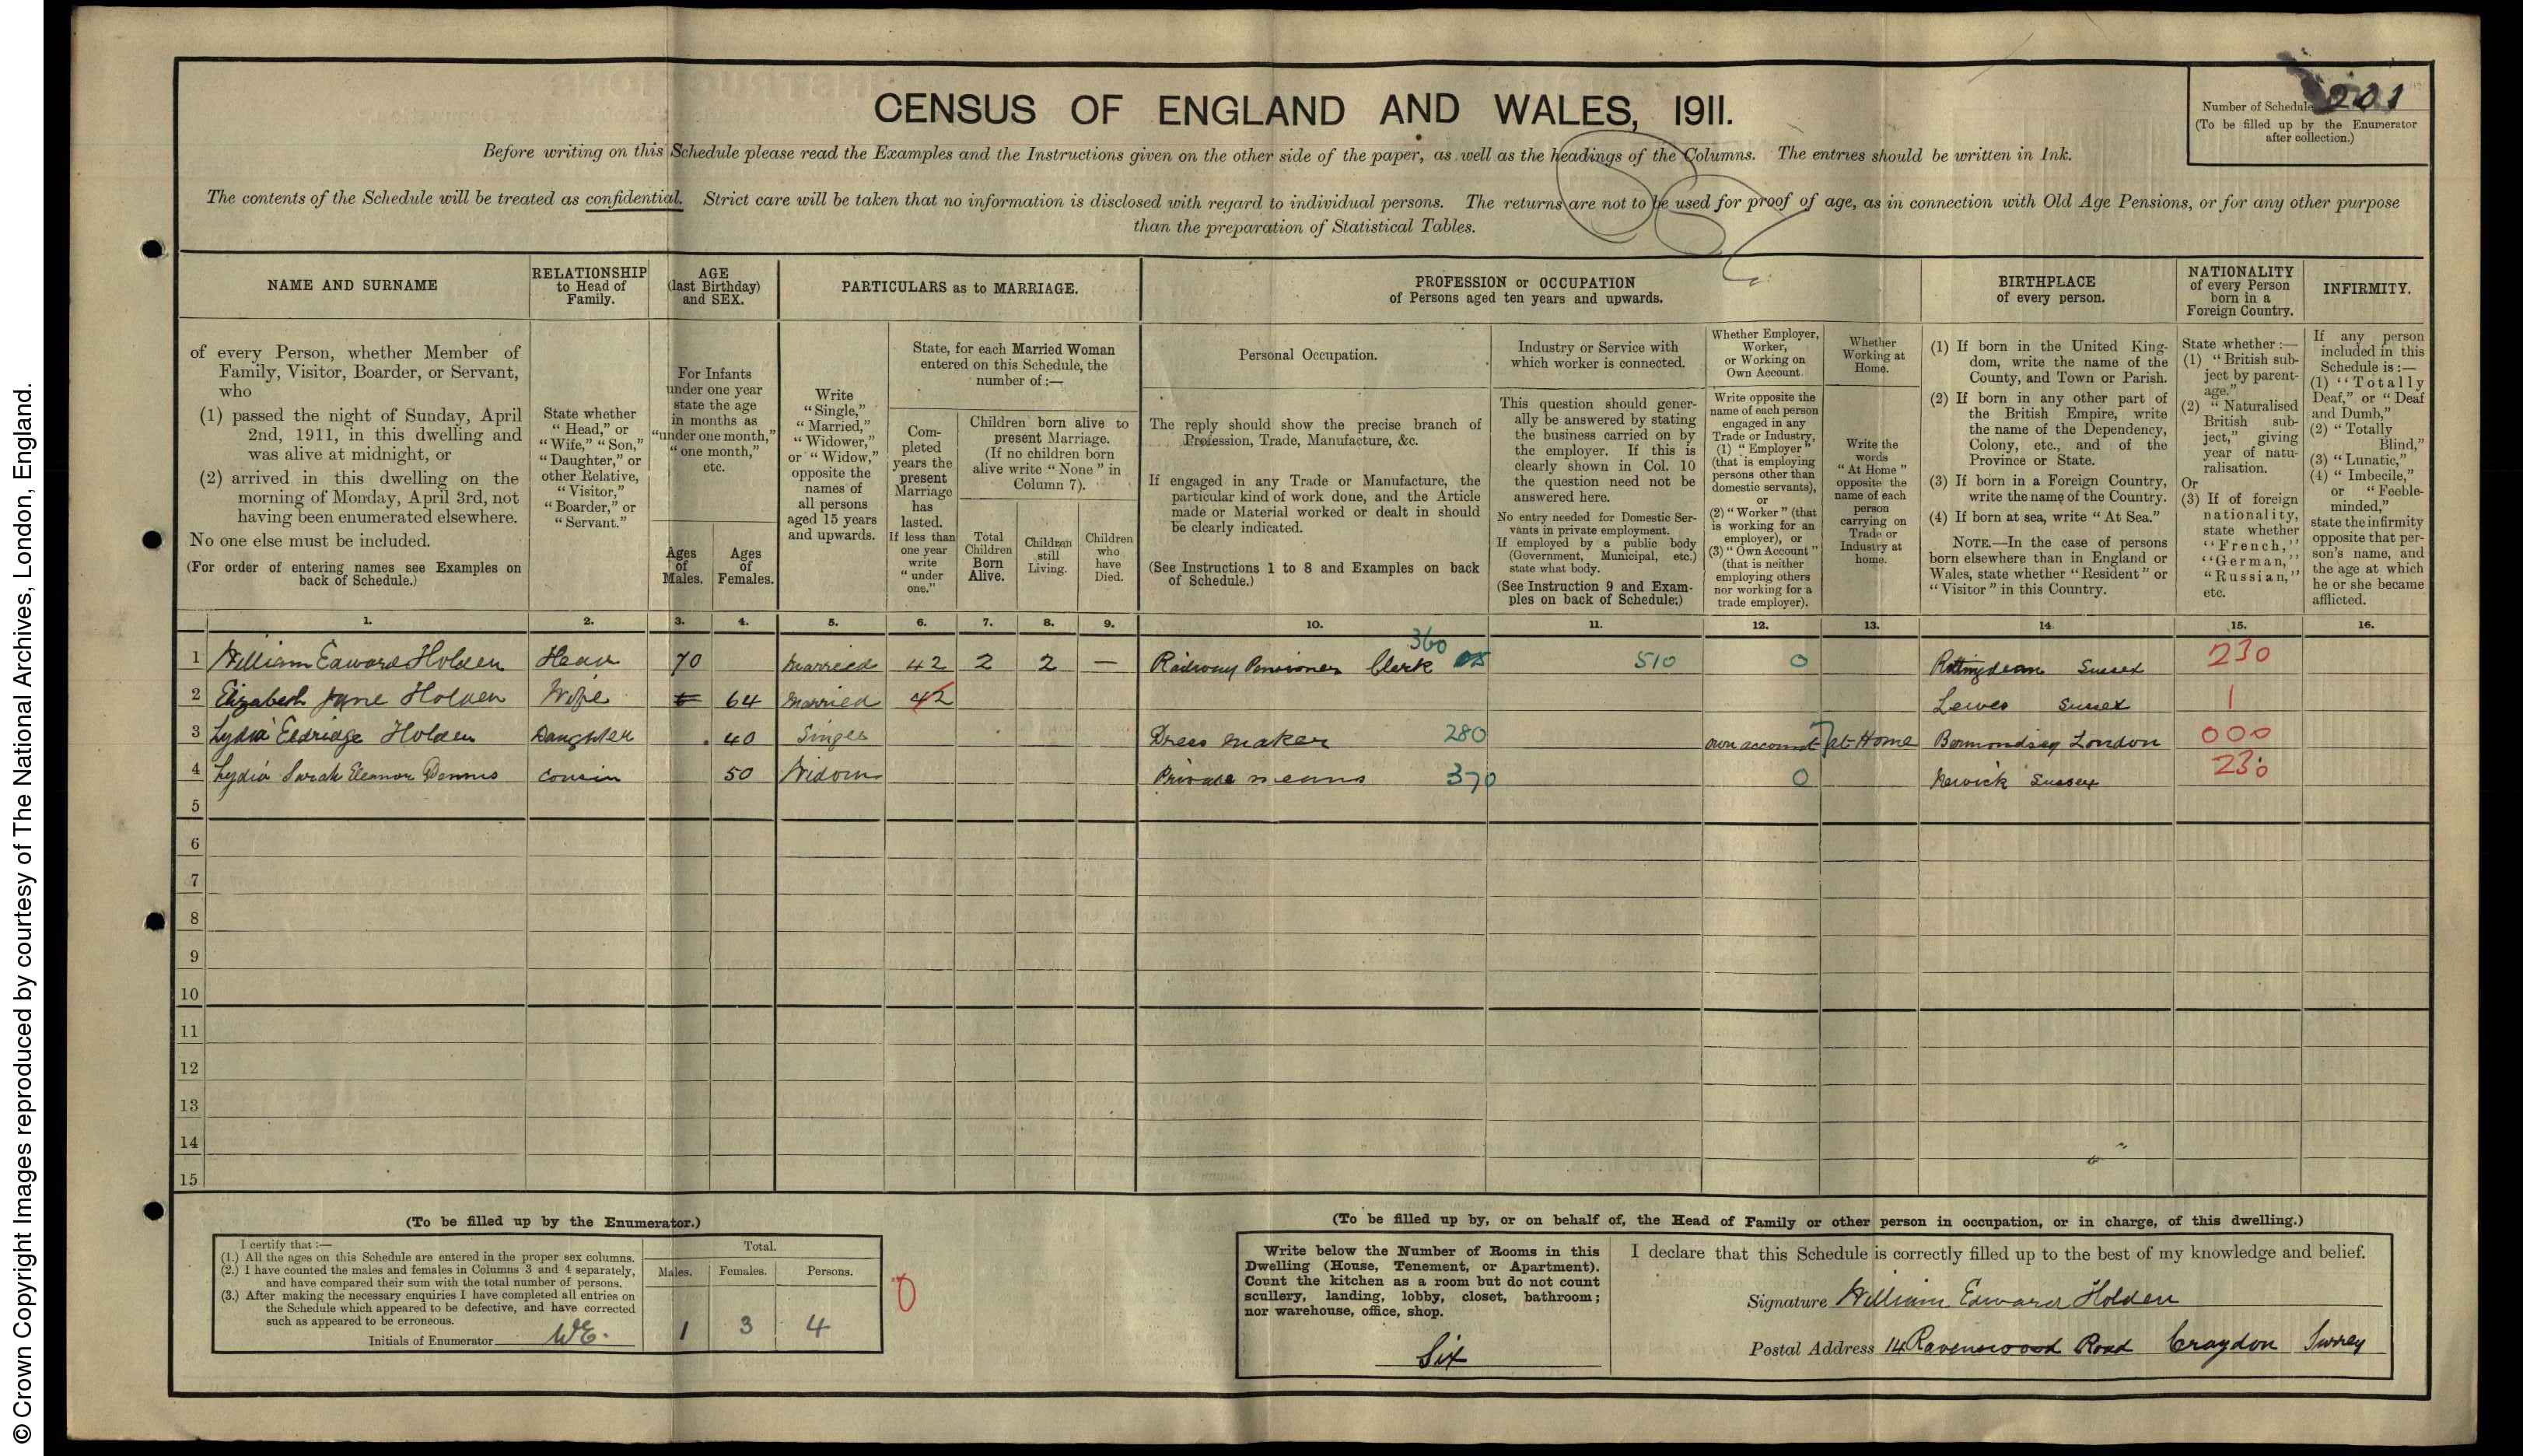 © Crown Copyright Images reproduced by courtesy of The National Archives, London, England.
CENSUS OF ENGLAND AND WALES, 1911.
Number of Schedule 201
(To be filled up by the Enumerator after collection.)
Before writing on this Schedule please read the Examples and the Instructions given on the other side of the paper, as well as the headings of the Columns. The entries should be written in Ink.
The contents of the Schedule will be treated as confidential. Strict care will be taken that no information is disclosed with regard to individual persons. The returns are not to be used for proof of age, as in connection with Old Age Pensions, or for any other purpose
than the preparation of Statistical Tables.
NAME AND SURNAME
of every Person, whether Member of
Family, Visitor, Boarder, or Servant,
who
(1) passed the night of Sunday, April
2nd, 1911, in this dwelling and
was alive at midnight, or
(2) arrived in this dwelling on the
morning of Monday, April 3rd, not
having been enumerated elsewhere.
No one else must be included.
(For order of entering names see Examples on
back of Schedule.)
RELATIONSHIP
to Head of
Family.
State whether
"Head," or
"Wife," "Son,"
"Daughter," or
other Relative,
"Visitor,"
"Boarder," or
"Servant."
AGE
(last Birthday)
and SEX.
For Infants
under one year
state the age
in months as
"under one month,"
"one month,"
etc.
Ages
of
Males.
Ages
of
Females.
PARTICULARS as to MARRIAGE.
Write
"Single,"
"Married,"
"Widower,"
or "Widow,"
opposite the
names of
all persons
aged 15 years
and upwards.
State, for each Married Woman
entered on this Schedule, the
number of:—
Com-
pleted
years the
present
Marriage
has
lasted.
If less than
one year
write
"under
one."
Children born alive to
present Marriage.
(If no children born
alive write "None" in
Column 7).
Total
Children
Born
Alive.
Children
still
Living.
Children
who
have
Died.
PROFESSION or OCCUPATION
of Persons aged ten years and upwards.
Personal Occupation.
The reply should show the precise branch of
Profession, Trade, Manufacture, &c.
If engaged in any Trade or Manufacture, the
particular kind of work done, and the Article
made or Material worked or dealt in should
be clearly indicated.
(See Instructions 1 to 8 and Examples on back
of Schedule.)
Industry or Service with
which worker is connected.
This question should gener-
ally be answered by stating
the business carried on by
the employer. If this is
clearly shown in Col. 10
the question need not be
answered here.
No entry needed for Domestic Ser-
vants in private employment.
If employed by a public body
(Government, Municipal, etc.)
state what body.
(See Instruction 9 and Exam-
ples on back of Schedule.)
Whether Employer,
Worker,
or Working on
Own Account.
Write opposite the
name of each person
engaged in any
Trade or Industry,
(1) "Employer"
(that is employing
persons other than
domestic servants),
or
(2) "Worker" (that
is working for an
employer), or
(3) "Own Account"
(that is neither
employing others
nor working for a
trade employer).
Whether
Working at
Home.
Write the
words
"At Home"
opposite the
name of each
person
carrying on
Trade or
Industry at
home.
BIRTHPLACE
of every person.
(1) If born in the United King-
dom, write the name of the
County, and Town or Parish.
(2) If born in any other part of
the British Empire, write
the name of the Dependency,
Colony, etc., and of the
Province or State.
(3) If born in a Foreign Country,
write the name of the Country.
(4) If born at sea, write "At Sea."
NOTE.—In the case of persons
born elsewhere than in England or
Wales, state whether "Resident" or
"Visitor" in this Country.
NATIONALITY
of every Person
born in a
Foreign Country.
State whether:—
(1) "British sub-
ject by parent-
age."
(2) "Naturalised
British sub-
ject," giving
year of natu-
ralisation.
Or
(3) If of foreign
nationality,
state whether
"French,"
"German,"
"Russian,"
etc.
INFIRMITY.
If any person
included in this
Schedule is:—
(1) "Totally
Deaf," or "Deaf
and Dumb,"
(2) "Totally
Blind,"
(3) "Lunatic,"
(4) "Imbecile,"
or "Feeble-
minded,"
state the infirmity
opposite that per-
son's name, and
the age at which
he or she became
afflicted.
1. 2. 3. 4. 5. 6. 7. 8. 9. 10. 11. 12. 13. 14. 15. 16.
1 William Edward Holden Head 70 Married 42 2 2 — Railway Pensioner Clerk 360 510 0 Rottingdean Sussex 230
2 Elizabeth Jane Holden Wife 64 Married 42 Lewes Sussex 1
3 Lydia Eldridge Holden Daughter 40 Single Dress maker 280 own account at Home Bermondsey London 000
4 Lydia Sarah Eleanor Dennis Cousin 50 Widow Private means 370 0 Newick Sussex 230
5
6
7
8
9
10
11
12
13
14
15
(To be filled up by the Enumerator.)
I certify that:—
(1.) All the ages on this Schedule are entered in the proper sex columns.
(2.) I have counted the males and females in Columns 3 and 4 separately,
and have compared their sum with the total number of persons.
(3.) After making the necessary enquiries I have completed all entries on
the Schedule which appeared to be defective, and have corrected
such as appeared to be erroneous.
Initials of Enumerator WE.
Total.
Males. Females. Persons.
1 3 4
0
(To be filled up by, or on behalf of, the Head of Family or other person in occupation, or in charge, of this dwelling.)
Write below the Number of Rooms in this
Dwelling (House, Tenement, or Apartment).
Count the kitchen as a room but do not count
scullery, landing, lobby, closet, bathroom;
nor warehouse, office, shop.
Six
I declare that this Schedule is correctly filled up to the best of my knowledge and belief.
Signature William Edward Holden
Postal Address 14 Ravenswood Road Croydon Surrey